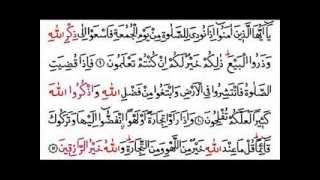 يَٰٓأَيُّهَا ٱلَّذِينَ ءَامَنُوٓا۟ إِذَا نُودِىَ لِلصَّلَوٰةِ مِن يَوْمِ ٱلْجُمُعَةِ فَٱسْعَوْا۟ إِلَىٰ ذِكْرِ ٱللَّهِ
وَذَرُوا۟ ٱلْبَيْعَ ذَٰلِكُمْ خَيْرٌ لَّكُمْ إِن كُنتُمْ تَعْلَمُونَ ٩ فَإِذَا قُضِيَتِ
ٱلصَّلَوٰةُ فَٱنتَشِرُوا۟ فِى ٱلْأَرْضِ وَٱبْتَغُوا۟ مِن فَضْلِ ٱللَّهِ وَٱذْكُرُوا۟ ٱللَّهَ
كَثِيرًا لَّعَلَّكُمْ تُفْلِحُونَ ١٠ وَإِذَا رَأَوْا۟ تِجَٰرَةً أَوْ لَهْوًا ٱنفَضُّوٓا۟ إِلَيْهَا وَتَرَكُوكَ
قَآئِمًا قُلْ مَا عِندَ ٱللَّهِ خَيْرٌ مِّنَ ٱللَّهْوِ وَمِنَ ٱلتِّجَٰرَةِ وَٱللَّهُ خَيْرُ ٱلرَّٰزِقِينَ ١١